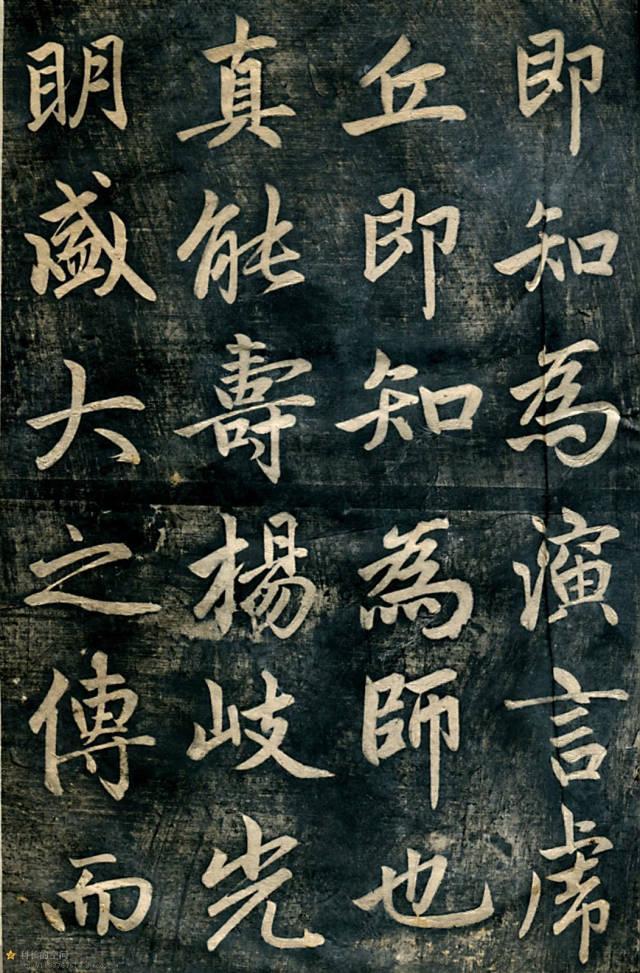 即知為演言虎
丘即知為師也
真能壽楊岐光
眀盛大之傳而